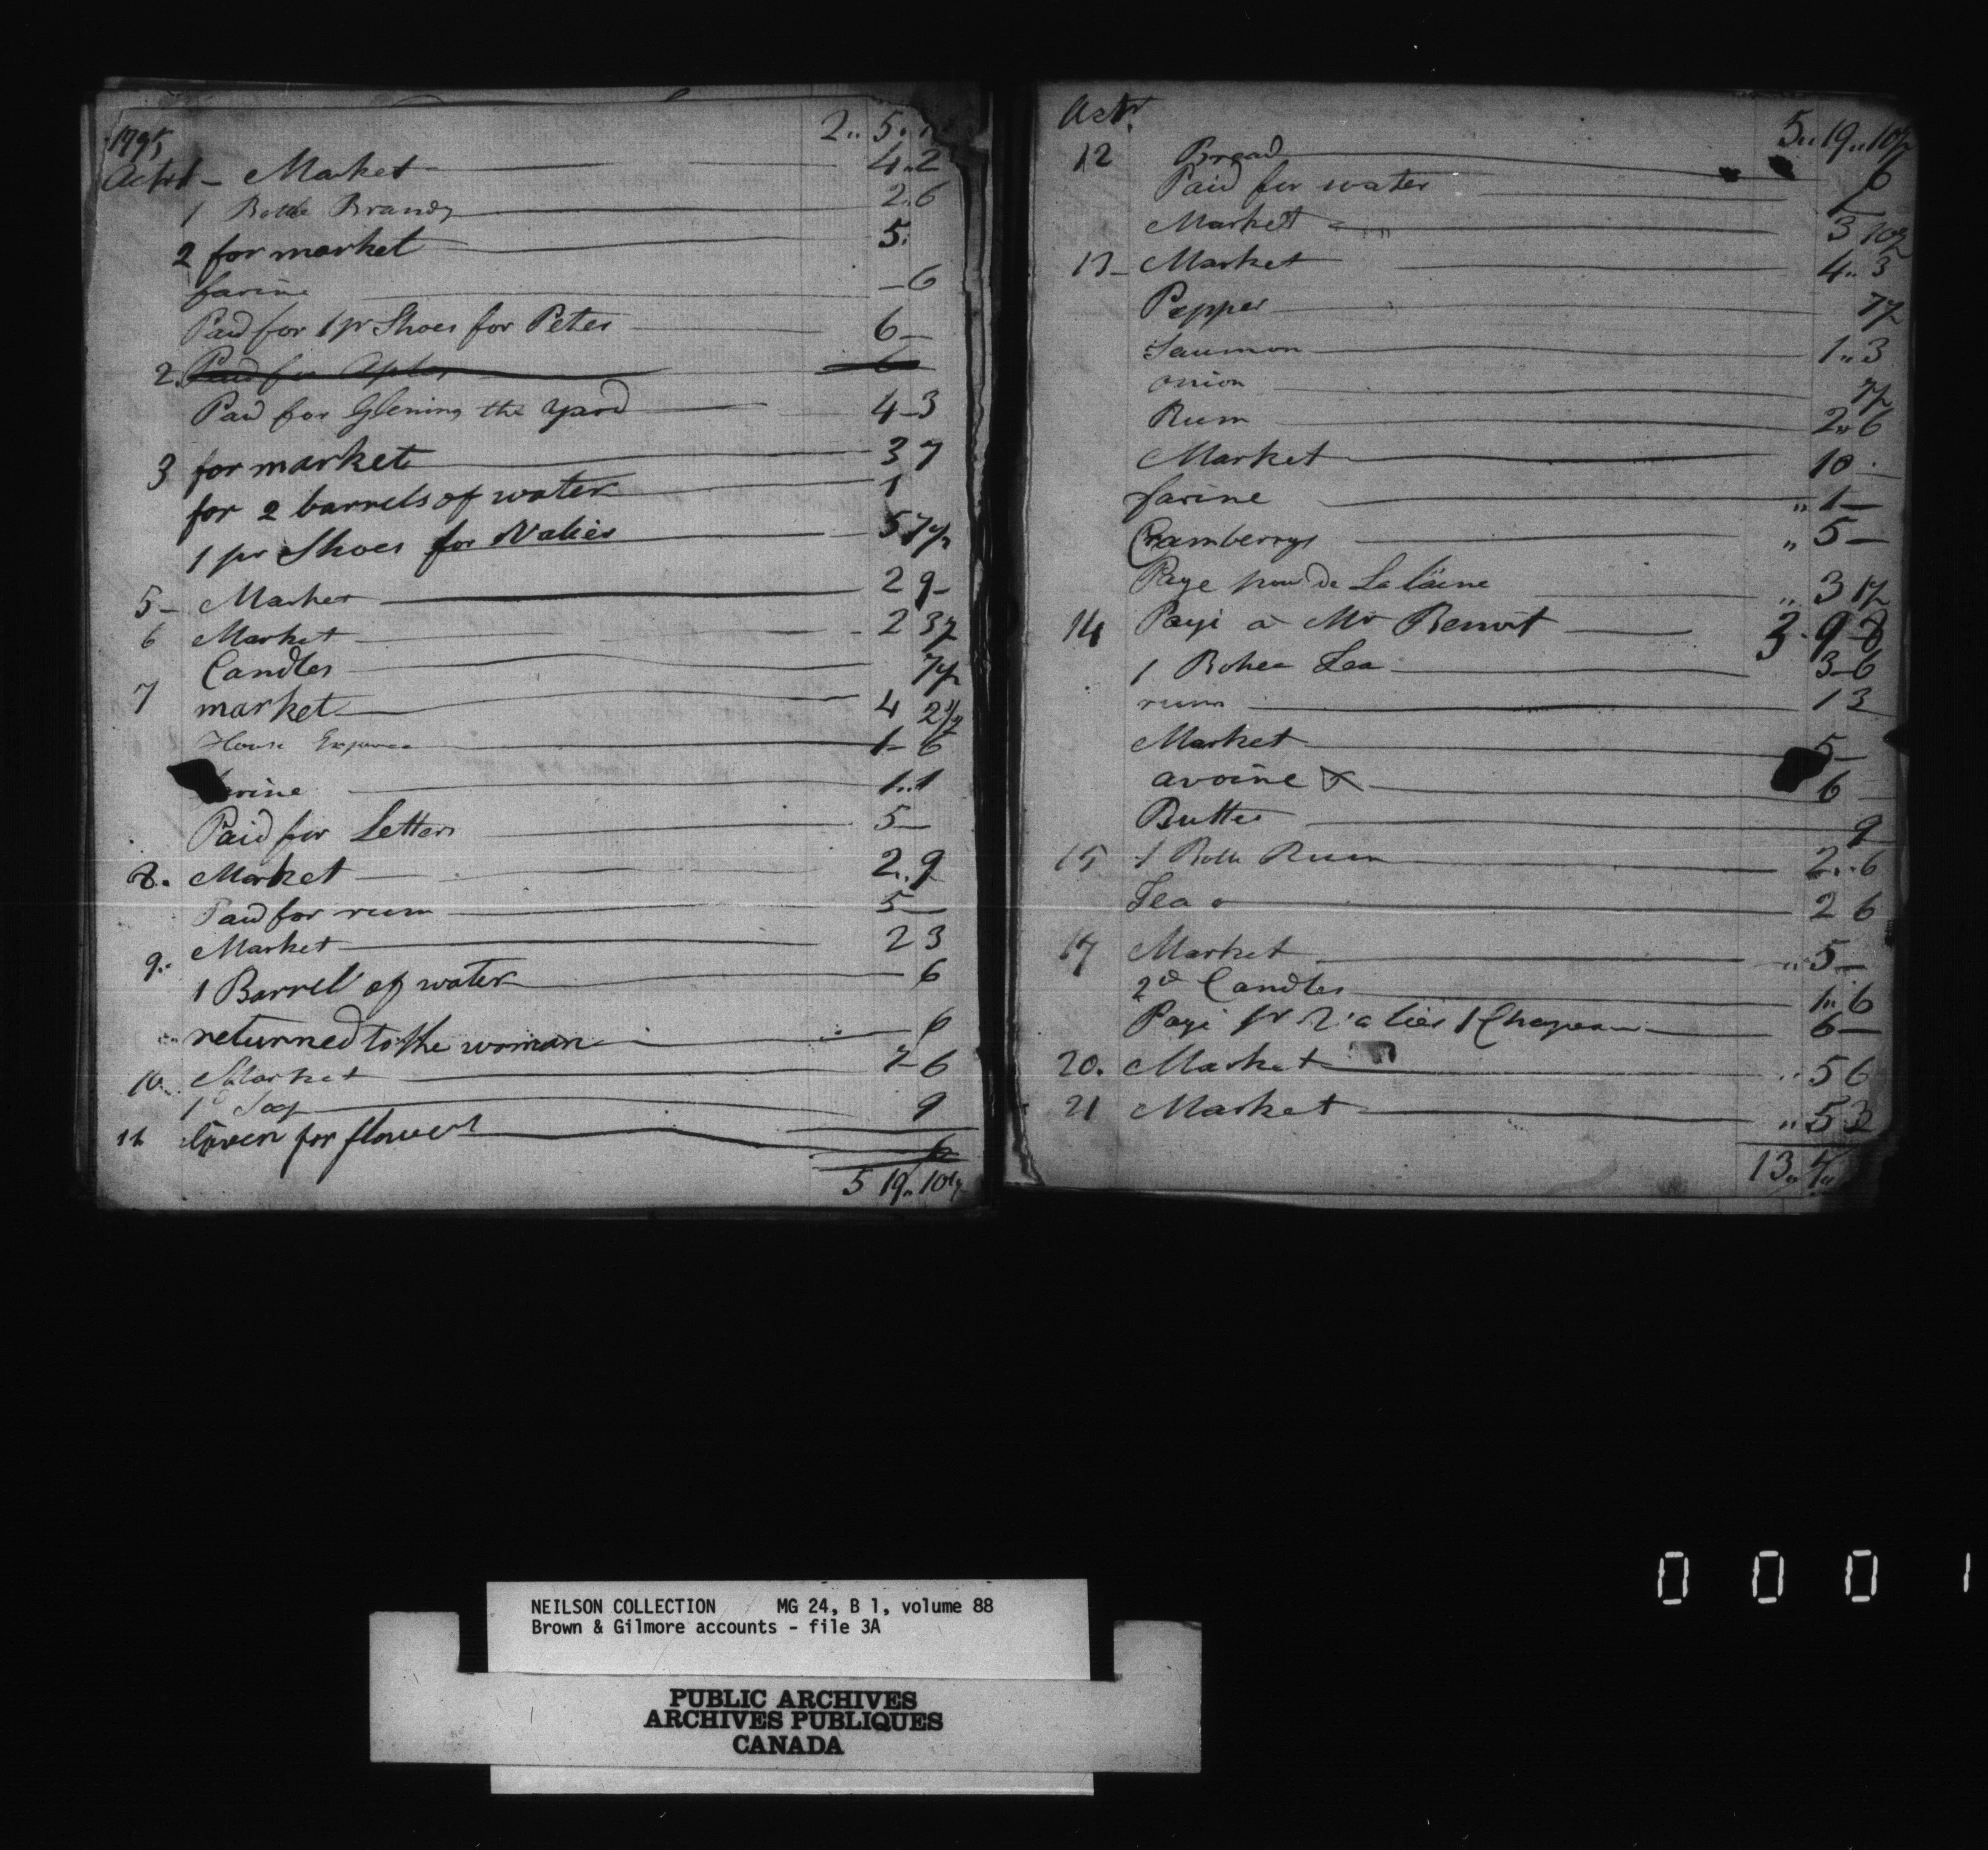 1795 2 .. 5 .
Octr 1 - Market 4 .. 2
1 Botle Brandy 2 . 6
2 for market 5 .
farine - 6
Paid for 1 pr Shoes for Peter 6 -
2. Paid for Aples 6
Paid for Glening the yard 4 - 3
3 for market 3 7
for 2 barrels of water 1
1 pr Shoes for Valier 5 7½
5 - Market 2 9 -
6 Market 2 3½
Candles 7½
7 market 4 2½
House Expence 1 - 6
1 .. 1
Paid for Letters 5 -
8. Market 2 .. 9
Paid for rum 5 -
9. Market 2 3
1 Barrel of water 6
returned to the woman 6
10. Market 7 - 6
1 Soap 9
11 Given for flowers 6
5 19 .. 10½
Octr. 5 .. 19 .. 10½
12 Bread 6
Paid for water 1
Market 3 10½
13 - Market 4 .. 3
Pepper 7½
Saumon 1 .. 3
onion 7½
Rum 2 .. 6
Market 10 -
farine .. 1 -
Cramberrys .. 5 -
Paye pour de La läine .. 3 1½
14 Payi a Mr Benoit 3 . 9 - 8
1 Bohea Tea 3 - 6
rum 1 3
Market 5 -
avoine 6
Butter 9
15 1 Botle Rum 2 .. 6
Tea 2 6
17 Market .. 5 -
2d Candles 1 .. 6
Payi pr Valier 1 Chapeau 6 -
20. Market .. 5 6
21 Market .. 5 3
13 ..
NEILSON COLLECTION MG 24, B 1, volume 88
Brown & Gilmore accounts - file 3A
PUBLIC ARCHIVES
ARCHIVES PUBLIQUES
CANADA
0 0 0 1